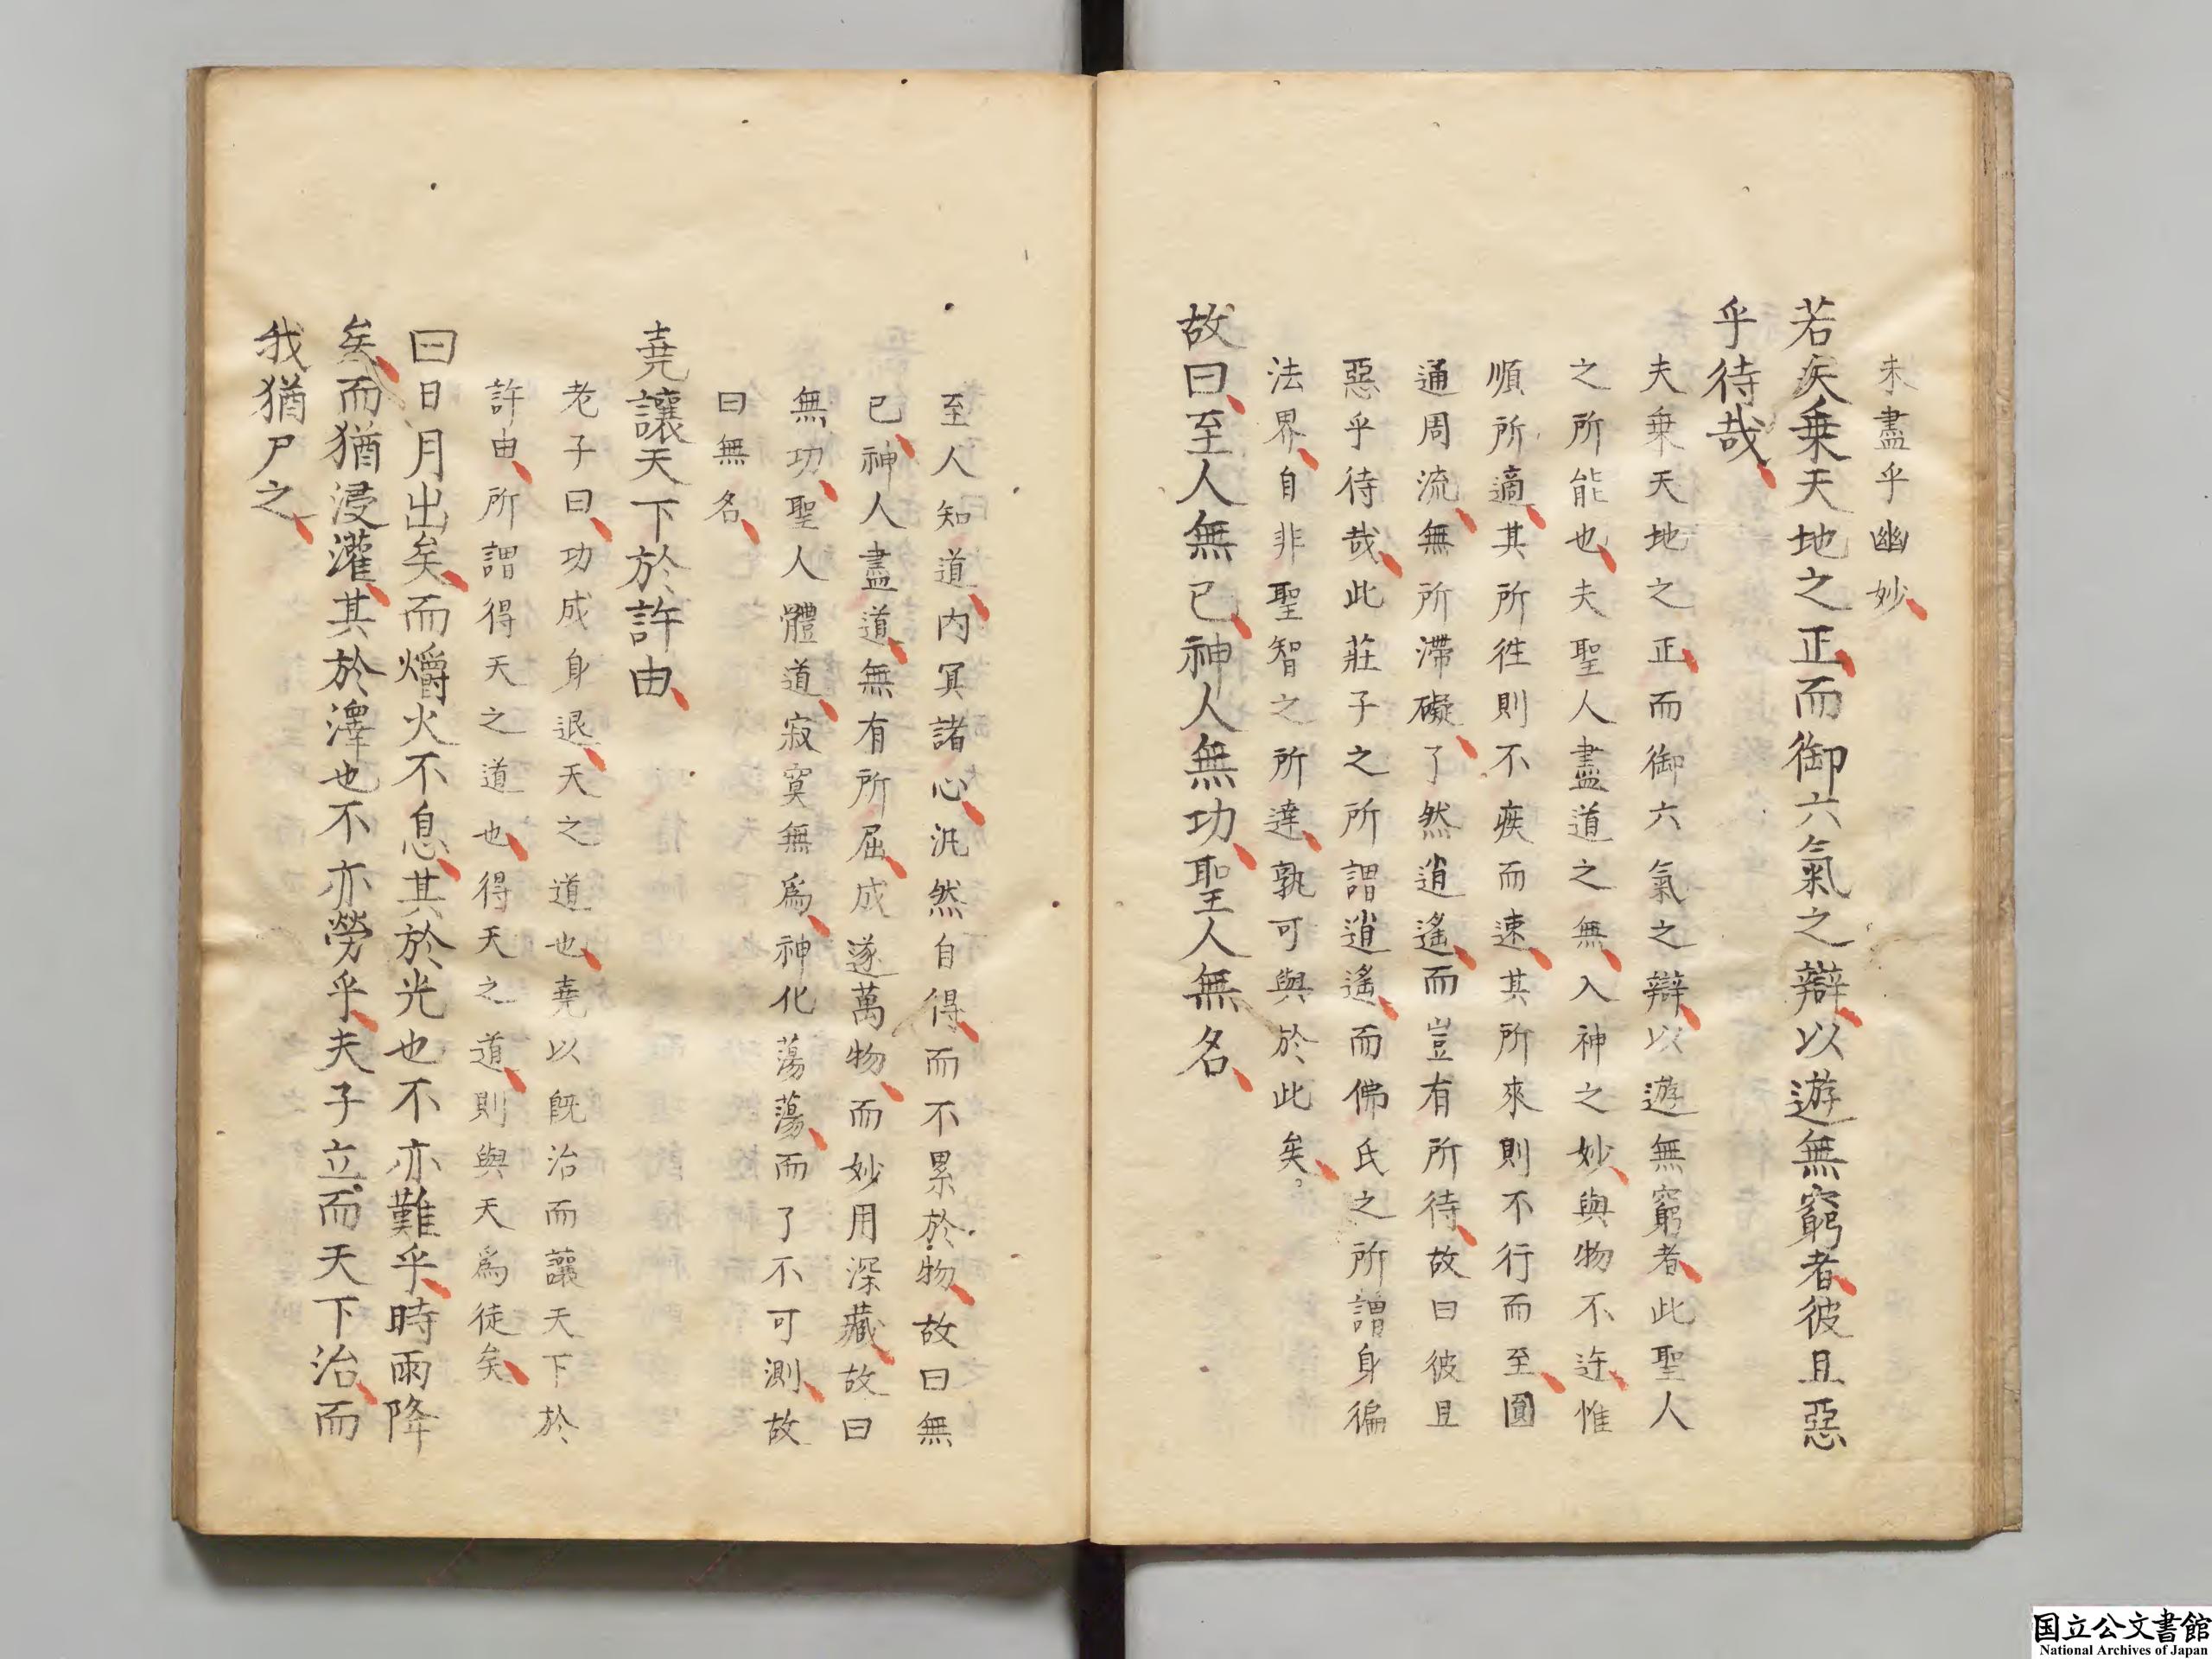 未盡乎幽妙
若矣乗天地之正而御六氣之辯以遊無窮者彼且惡
乎待哉
夫乗天地之正而御六氣之辯以遊無窮者此聖人
之所能也夫聖人盡道之無入神之妙與物不迕惟
順所適其所徃則不疾而速其所來則不行而至圓
通周流無所滯礙了然逍遙而豈有所待故曰彼且
惡乎待哉此莊子之所謂逍遙而佛氏之所謂身徧
法界自非聖智之所達孰可與於此矣
故曰至人無已神人無功聖人無名
至人知道内冥諸心汎然自得而不累於物故曰無
已神人盡道無有所屈成遂萬物而妙用深藏故曰
無功聖人體道寂寞無為神化蕩蕩而了不可測故
曰無名
堯讓天下於許由
老子曰功成身退天之道也堯以旣治而讓天下於
許由所謂得天之道也得天之道則與天為徒矣
曰日月出矣而爝火不息其於光也不亦難乎時雨降
矣而猶浸灌其於澤也不亦勞乎夫子立而天下治而
我猶尸之
国立公文書館
National Archives of Japan